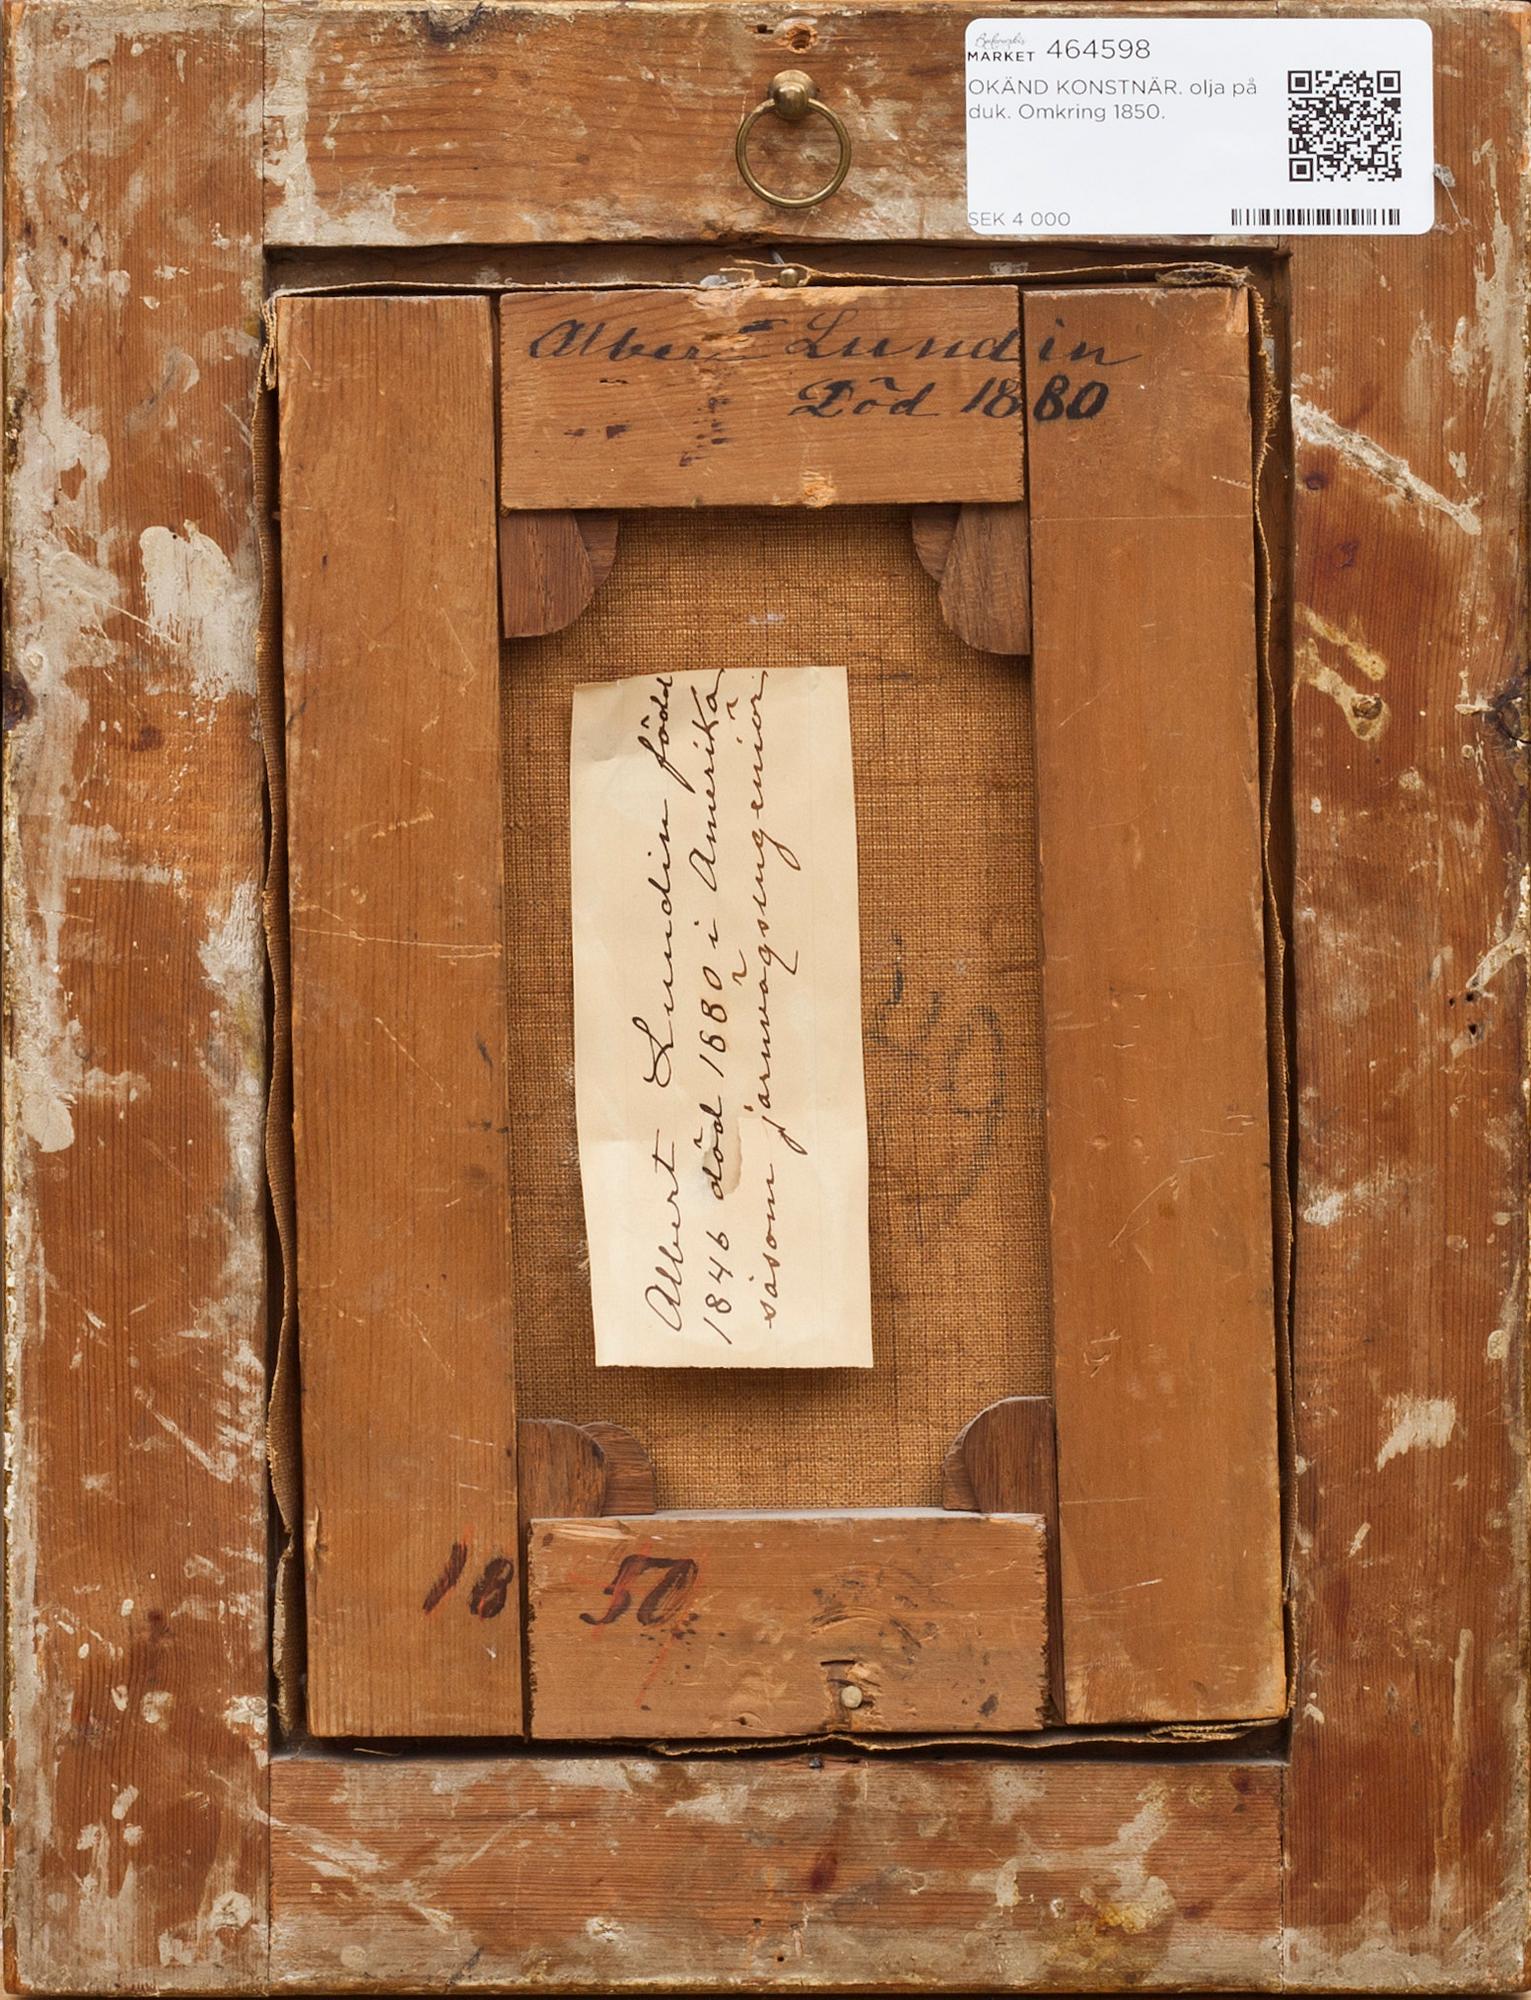 Bukowskis
MARKET 464598
OKÄND KONSTNÄR. olja på
duk. Omkring 1850.
SEK 4 000
Albert Lundin
Död 1880
Albert Lundin född
1846 död 1880 i Amerika
såsom järnvägsingeniör
1850